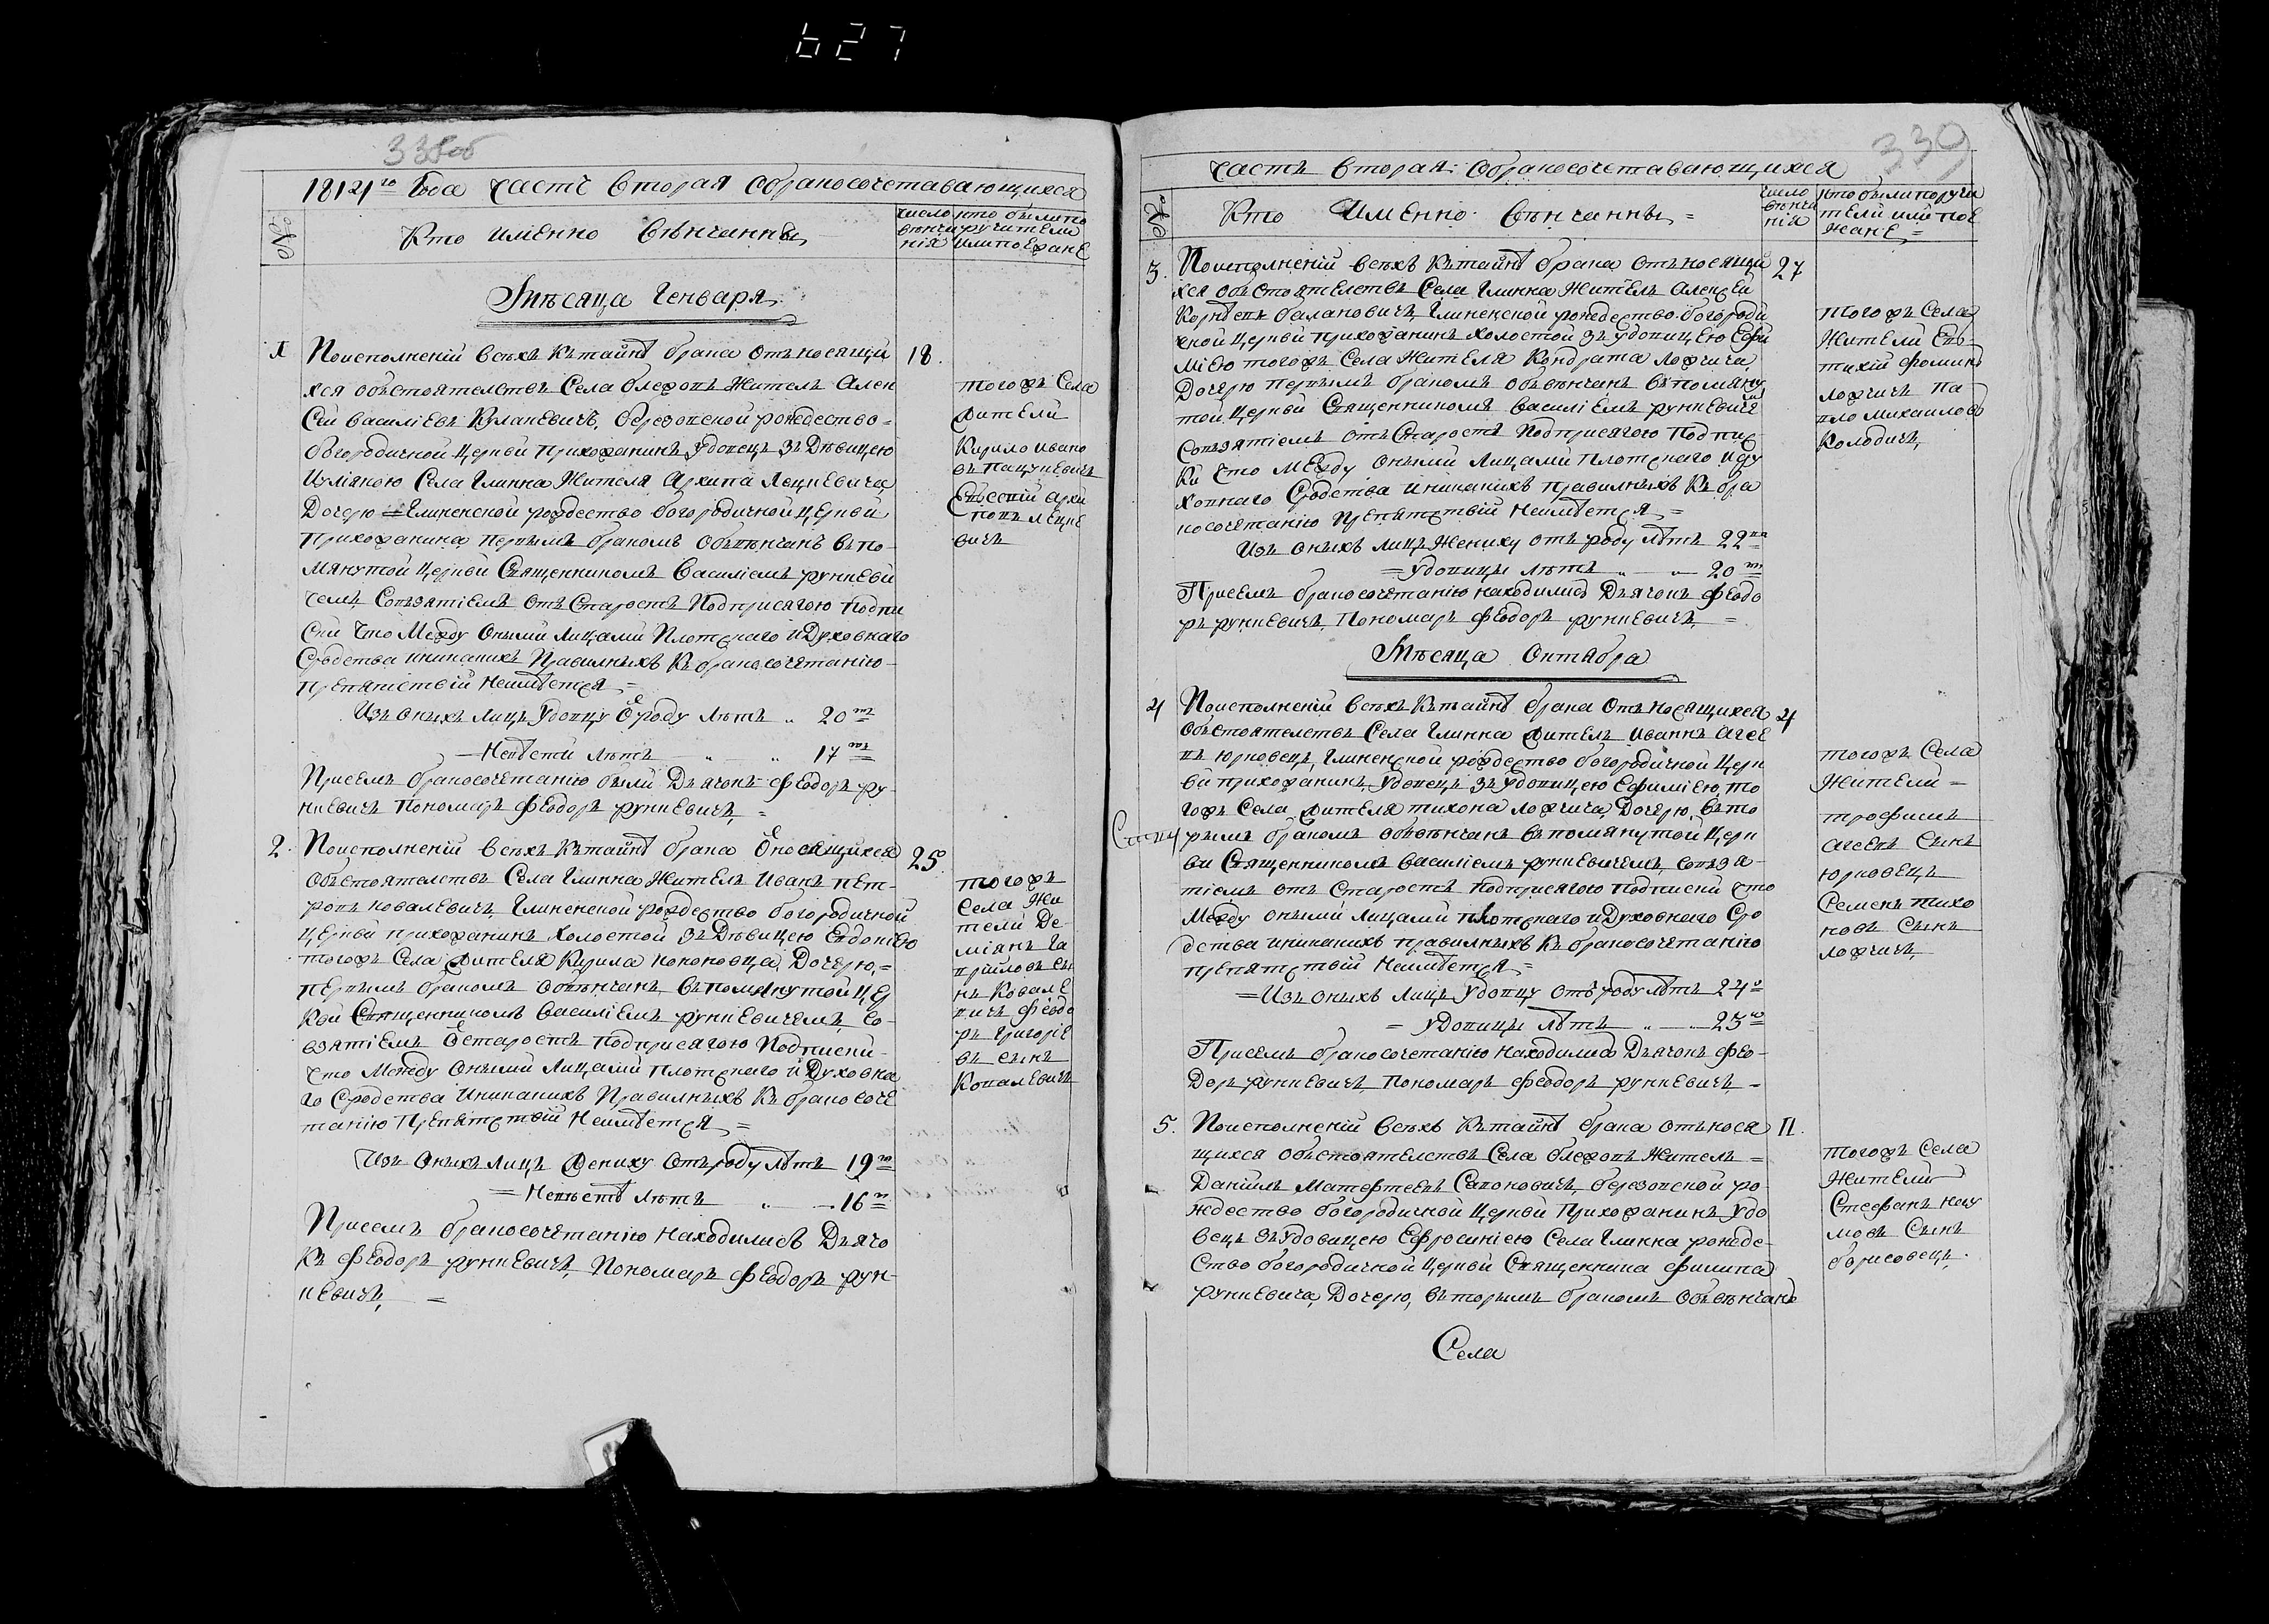 627
338об
1814го Года часть вторая обракосочетавающихся
№
Кто именно венчанны
число венчания
кто были поручители или поезжане
Месяца Генваря
1
По исполнении всехъ къ тайнѣ брака отъносящи
18.
хся обстоятелствъ Села Жителъ Алек
сей Василіевъ Куланевичъ, березовской рождество=
богородичной церкви прихожанинъ удовецъ зъ Дѣвицею
Села Глинка Жителя Архипа Лецкевича
Дочерю = Глиненской рождество богородичной церкви
прихожанина первымъ бракомъ обвѣнчанъ въ по-
мянутой церкви Священникомъ Василіемъ рункеви
чемъ, Совзятіемъ отъ Старостъ Подприсягою подпи
ски что Между оными Лицами Плотскаго и Духовнаго
Сродства иникакихъ Правилныхъ къ бракосочетанію-
препятствій Неимѣется =
Изъ оныхъ Лицъ Удовцу Ѿ роду Лѣтъ „ 20ть
— Невѣсти Лѣтъ „ „ 17ть
Присемъ бракосочетанію были Дьячокъ феодоръ ру-
нкевичъ пономаръ феодоръ рункевичъ, =
тогожъ Села
жители
Кирило ивано
въ пацукевичъ
Евсевій архи
повъ леце
вичъ
2.
По исполнении всехъ къ тайнѣ брака Ѿносящихся
25.
Обстоятелствъ Села Глинка Жителъ Иванъ пет-
ровъ ковалевичъ, Глиненской рождество богородичной
церкви прихожанинъ холостой зъ Дѣвицею Евдокіею
тогожъ Села жителя Кирила кононовца, Дочерю, =
первымъ бракомъ обвѣнчанъ въ помянутой цер
кви Священникомъ Василіемъ рункевичемъ, со-
взятіемъ Ѿ старостъ подприсягою Подписки-
что Между оными Лицами плотскаго и Духовна
го Сродства иникакихъ Правилныхъ къ бракосоче
танію Препятствій Неимѣется =
Изъ оныхъ Лицъ жениху отъроду лѣтъ 19ть
= Невѣстѣ Лѣтъ „ — 16ть
Присемъ бракосочетанію находились Дьячо
къ феодоръ рункевичъ, Пономаръ феодоръ рун-
кевичъ, =
тогожъ
Села Жи
тели Де
міянъ га
вриловъ сы
нъ Ковале
вичъ феодо
ръ григоріе
въ сынъ
Ковалевичъ
339
часть вторая обракосочетавающихся
№
Кто именно венчанны =
число
вѣнча
нія
кто были поручи
тели или пое
жане =
3.
По исполнении всехъ къ тайнѣ брака отъносящи
27
хся обстоятелствъ Села Глинка Жителъ Алексей
Корнѣевъ балановичъ, Глиненской рождество богороди
чной церкви прихожанинъ холостой зъ удовицею Ефи
міею тогожъ Села Жителя Кондрата ложчича,
Дочерю первымъ бракомъ обвѣнчанъ въ помяну
той церкви Священникомъ Василіемъ рункевиче
Совзятіемъ отъ Старостъ Подприсягою подпис
ки что Между оными Лицами Плотскаго и ду
ховнаго Сродства иникакихъ правилныхъ къ бра
косочетанію препятствій Неимѣется =
Изъ оныхъ лицъ Жениху отъ роду лѣтъ 22ва
= удовицы лѣтъ „ — 20ть
Присемъ бракосочетанію находились Дьячокъ феодо
ръ рункевичъ, Пономаръ феодоръ рункевичъ, =
тогожъ Села
Жители
тихій фоминъ
ложчичъ па
вло михаиловъ
Колодичъ,
Месяца Октября
4
По исполнении всехъ къ тайнѣ брака отъносящихся
4
обстоятелствъ Села Глинка жителъ иваннъ агее
въ юрковецъ, Глиненской рождество богородичной цер
кви прихожанинъ, удовецъ зъ удовицею Ефиміею, то
гожъ Села жителя тихона ложчича, Дочерю, вто
рымъ бракомъ обвѣнчанъ въ помянутой церк
ви Священникомъ Василіемъ рункевичемъ, совза-
тіемъ отъ Старостъ подприсягою подписки что
Между оными лицами плотскаго и Духовнаго Сро
дства иникакихъ правилныхъ къ бракосочетанію
препятствій Неимѣется =
= Изъ оныхъ Лицъ Удовцу отъ роду лѣтъ 24
= удовицы лѣтъ „ — 23
Присемъ бракосочетанію находились Дьячокъ фео-
доръ рункевичъ, пономаръ феодоръ рункевичъ, -
тогожъ Села
Жители =
трофимъ
агеевъ Сынъ
юрковецъ
Семенъ тихо
новъ Сынъ
ложчичъ,
5.
По исполнении всехъ къ тайнѣ брака отъносѧ
11.
щихся обстоятелствъ Села Жителъ =
Даніилъ Матфѣевъ Сапоновичъ, березовской ро-
ждество богородичной церкви прихожанинъ удо
вецъ зъ удовицею Ефросиніею Села Глинка рожде-
ство богородичной церкви Священника филипа
рункевича, Дочерю, вторымъ бракомъ обвѣнчанъ
тогожъ Села
Жители
Стефанъ нау
мовъ Сынъ
борисовецъ.
Села